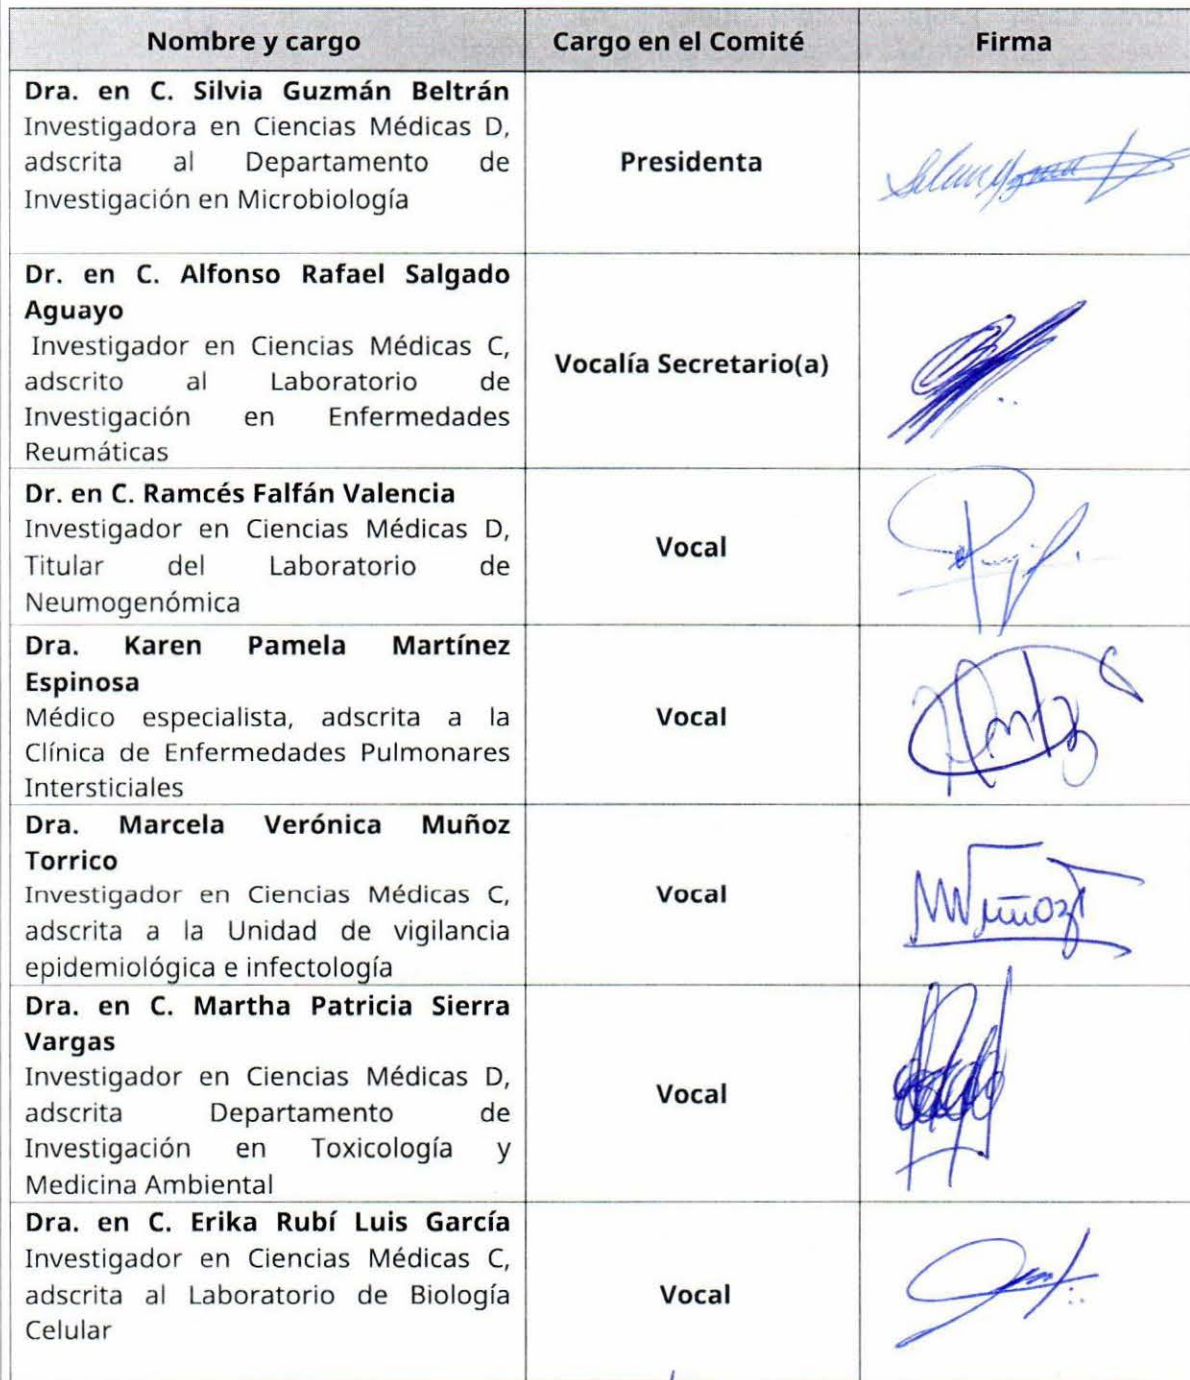 Nombre y cargo
Cargo en el Comité
Firma
Dra. en C. Silvia Guzmán Beltrán
Investigadora en Ciencias Médicas D,
adscrita al Departamento de
Investigación en Microbiología
Presidenta
Dr. en C. Alfonso Rafael Salgado
Aguayo
Investigador en Ciencias Médicas C,
adscrito al Laboratorio de
Investigación en Enfermedades
Reumáticas
Vocalía Secretario(a)
Dr. en C. Ramcés Falfán Valencia
Investigador en Ciencias Médicas D,
Titular del Laboratorio de
Neumogenómica
Vocal
Dra. Karen Pamela Martínez
Espinosa
Médico especialista, adscrita a la
Clínica de Enfermedades Pulmonares
Intersticiales
Vocal
Dra. Marcela Verónica Muñoz
Torrico
Investigador en Ciencias Médicas C,
adscrita a la Unidad de vigilancia
epidemiológica e infectología
Vocal
Dra. en C. Martha Patricia Sierra
Vargas
Investigador en Ciencias Médicas D,
adscrita Departamento de
Investigación en Toxicología y
Medicina Ambiental
Vocal
Dra. en C. Erika Rubí Luis García
Investigador en Ciencias Médicas C,
adscrita al Laboratorio de Biología
Celular
Vocal